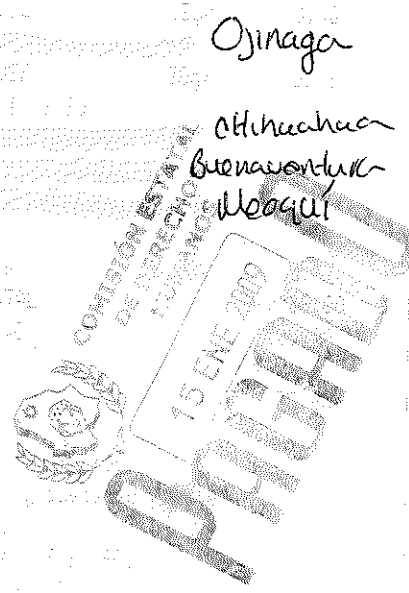 Ojinaga
Chihuahua
Buenaventura
Meoqui
COMISIÓN ESTATAL
DE DERECHOS
HUMANOS
15 ENE 2009
PAGADO